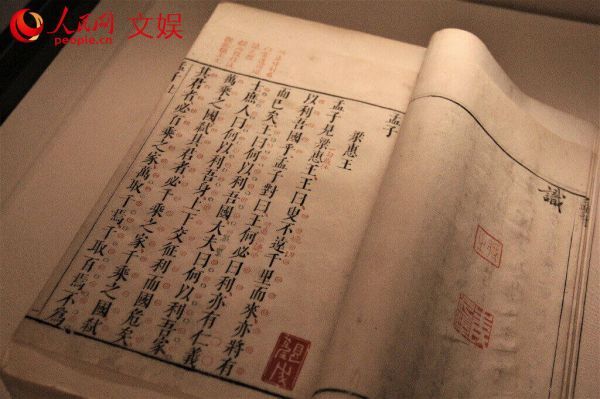 人民网 文娱
people.cn
識
孟子
梁惠王
孟子見梁惠王王曰叟不遠千里而來亦將有
以利吾國乎孟子對曰王何必曰利亦有仁義
而已矣王曰何以利吾國大夫曰何以利吾家
士庶人曰何以利吾身上下交征利而國危矣
萬乘之國弒其君者必千乘之家千乘之國弒
其君者必百乘之家萬取千焉千取百焉不為